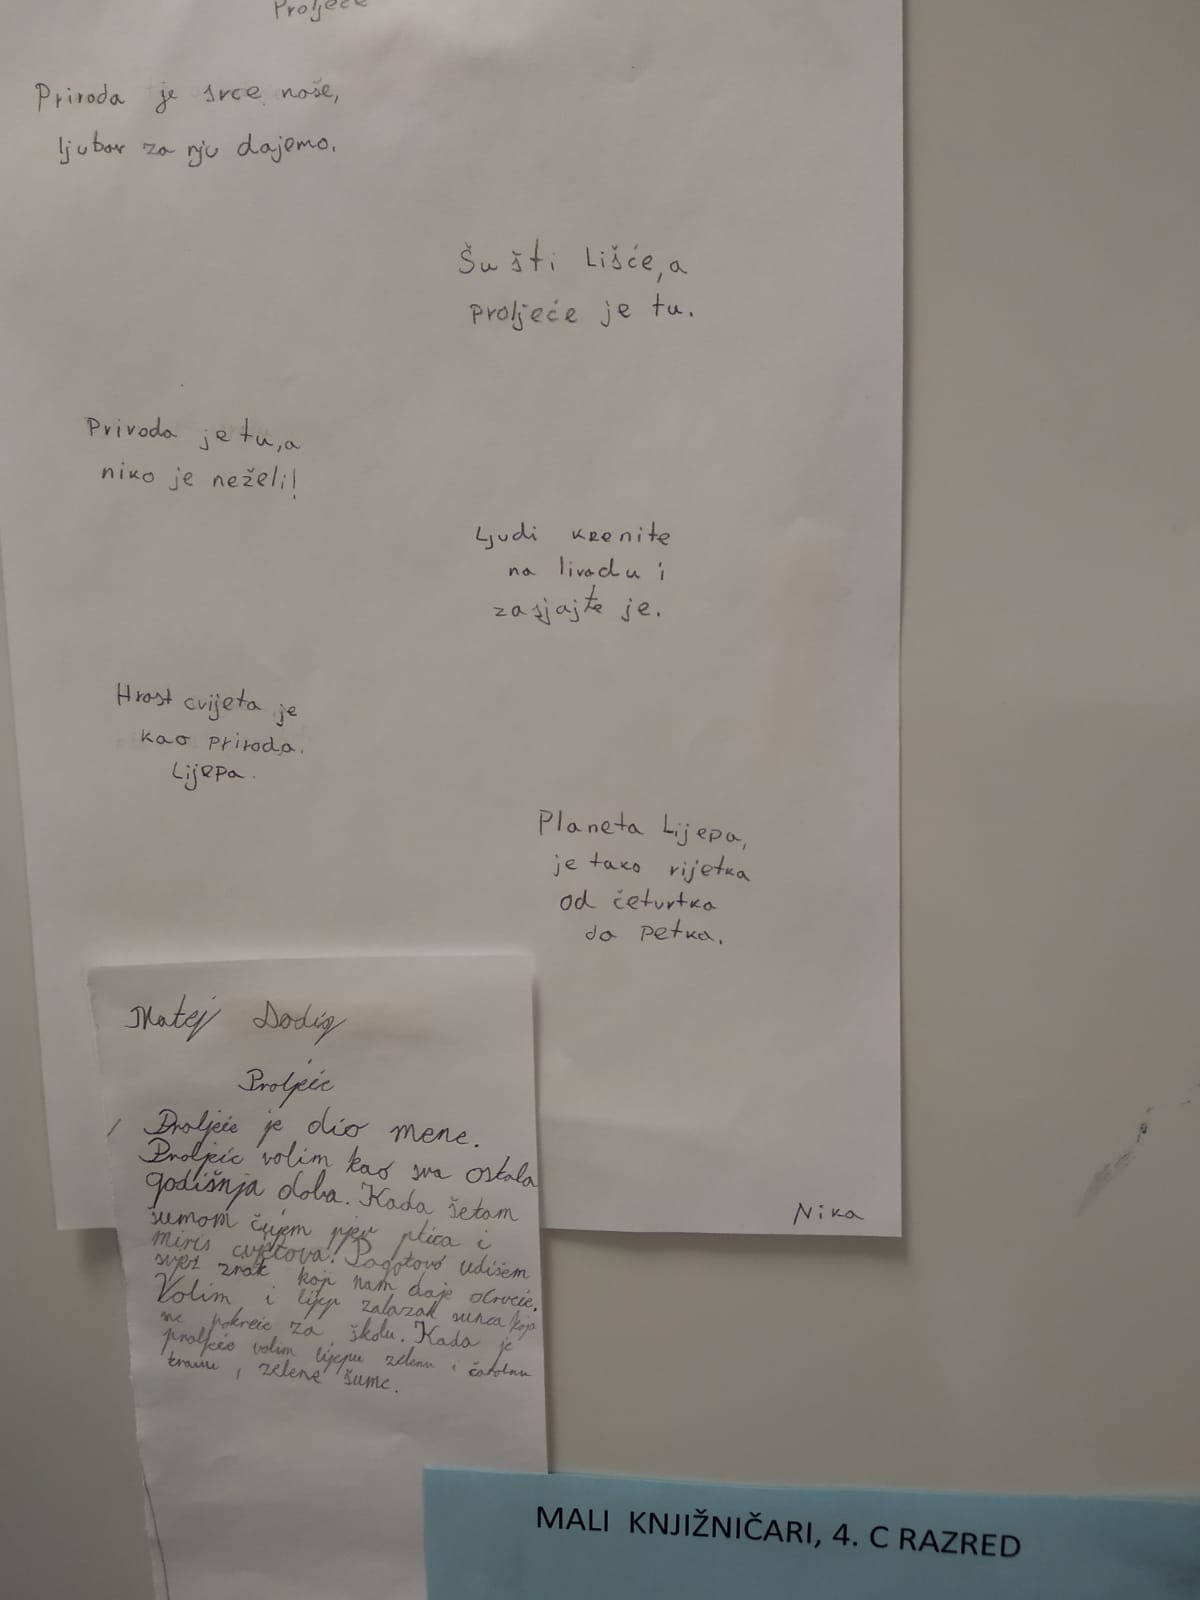 Proljeće
Priroda je srce naše,
ljubav za nju dajemo.
Šušti Lišće, a
proljeće je tu.
Priroda je tu, a
niko je neželi!
Ljudi krenite
na livadu i
zasjajte je.
Hrast cvijeta je
kao priroda.
Lijepa.
Planeta Lijepa,
je tako rijetka
od četvrtka
do petka.
Nika
Matej Dodig
Proljeće
Proljeće je dio mene.
Proljeće volim kao sva ostala
godišnja doba. Kada šetam
šumom čujem pjev ptica i
miris cvjetova. Pogotovo udišem
svjež zrak koji nam daje drveće.
Volim i lijep zalazak sunca koji
me pokreće za školu. Kada je
proljeće volim lijepu zelenu i čarobnu
travu, zelene šume.
MALI KNJIŽNIČARI, 4. C RAZRED